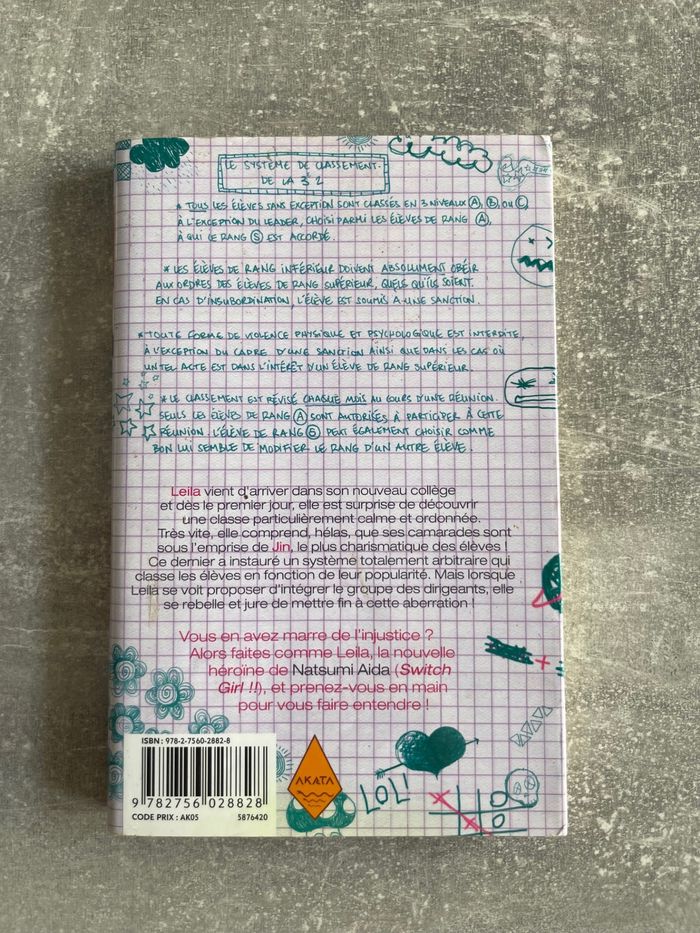 LE SYSTÈME DE CLASSEMENT
DE LA 3e2
* TOUS LES ÉLÈVES SANS EXCEPTION SONT CLASSÉS EN 3 NIVEAUX A, B, OU C,
À L'EXCEPTION DU LEADER, CHOISI PARMI LES ÉLÈVES DE RANG A,
À QUI LE RANG S EST ACCORDÉ.
* LES ÉLÈVES DE RANG INFÉRIEUR DOIVENT ABSOLUMENT OBÉIR
AUX ORDRES DES ÉLÈVES DE RANG SUPÉRIEUR, QUELS QU'ILS SOIENT.
EN CAS D'INSUBORDINATION, L'ÉLÈVE EST SOUMIS À UNE SANCTION.
* TOUTE FORME DE VIOLENCE PHYSIQUE ET PSYCHOLOGIQUE EST INTERDITE,
À L'EXCEPTION DU CADRE D'UNE SANCTION AINSI QUE DANS LES CAS OÙ
UN TEL ACTE EST DANS L'INTÉRÊT D'UN ÉLÈVE DE RANG SUPÉRIEUR.
* LE CLASSEMENT EST RÉVISÉ CHAQUE MOIS AU COURS D'UNE RÉUNION.
SEULS LES ÉLÈVES DE RANG A SONT AUTORISÉS À PARTICIPER À CETTE
RÉUNION. L'ÉLÈVE DE RANG S PEUT ÉGALEMENT CHOISIR COMME
BON LUI SEMBLE DE MODIFIER LE RANG D'UN AUTRE ÉLÈVE.
Leila vient d'arriver dans son nouveau collège
et dès le premier jour, elle est surprise de découvrir
une classe particulièrement calme et ordonnée.
Très vite, elle comprend, hélas, que ses camarades sont
sous l'emprise de Jin, le plus charismatique des élèves !
Ce dernier a instauré un système totalement arbitraire qui
classe les élèves en fonction de leur popularité. Mais lorsque
Leila se voit proposer d'intégrer le groupe des dirigeants, elle
se rebelle et jure de mettre fin à cette aberration !
Vous en avez marre de l'injustice ?
Alors faites comme Leila, la nouvelle
héroïne de Natsumi Aida (Switch
Girl !!), et prenez-vous en main
pour vous faire entendre !
ISBN : 978-2-7560-2882-8
9 782756 028828
CODE PRIX : AK05 5876420
AKATA
LOL!